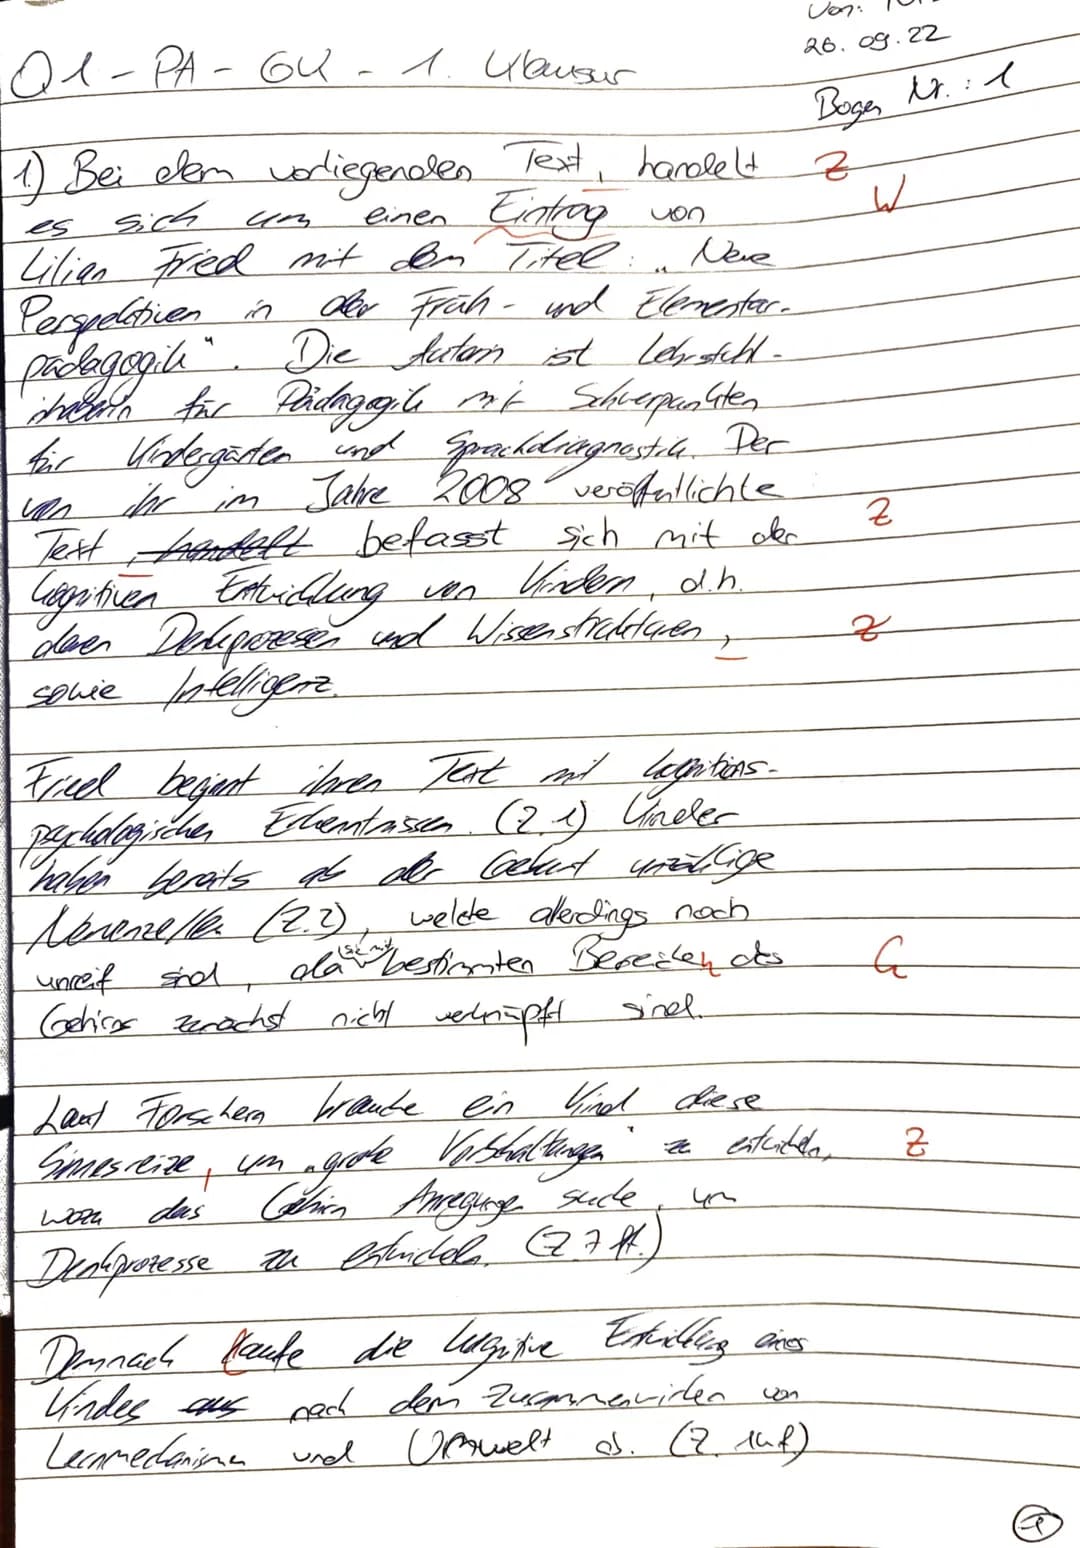 Von:
26.09.22
Q1 - PA - GK - 1. Klausur
Bogen Nr.: 1
1.) Bei dem vorliegenden Text, handelt Z
es sich um einen Eintrag von W
Lilian Fried mit dem Titel: „Neue
Perspektiven in der Früh- und Elementar-
pädagogik". Die Autorin ist Lehrstuhl-
inhaberin für Pädagogik mit Schwerpunkten
für Kindergärten und Sprachdiagnostik. Der
von ihr im Jahre 2008 veröffentlichte
Text, handelt befasst sich mit der Z
kognitiven Entwicklung von Kindern, d.h.
deren Denkprozessen und Wissensstrukturen, Z
sowie Intelligenz.
Fried beginnt ihren Text mit kognitions-
psychologischen Erkenntnissen. (Z.1) Kinder
haben bereits ab der Geburt unzählige
Nervenzellen (Z.2), welche allerdings noch
unreif sind, da sie mit bestimmten Bereichen des G
Gehirns zunächst nicht verknüpft sind.
Laut Forschern brauche ein Kind diese
Sinnesreize, um „grobe Vorschaltungen" zu entwickeln, Z
wozu das Gehirn Anregungen suche, um
Denkprozesse zu entwickeln. (Z 7 ff.)
Demnach laufe die kognitive Entwicklung eines
Kindes aus nach dem Zusammenwirken von
Lernmechanismen und Umwelt ab. (Z. 14f.)
1